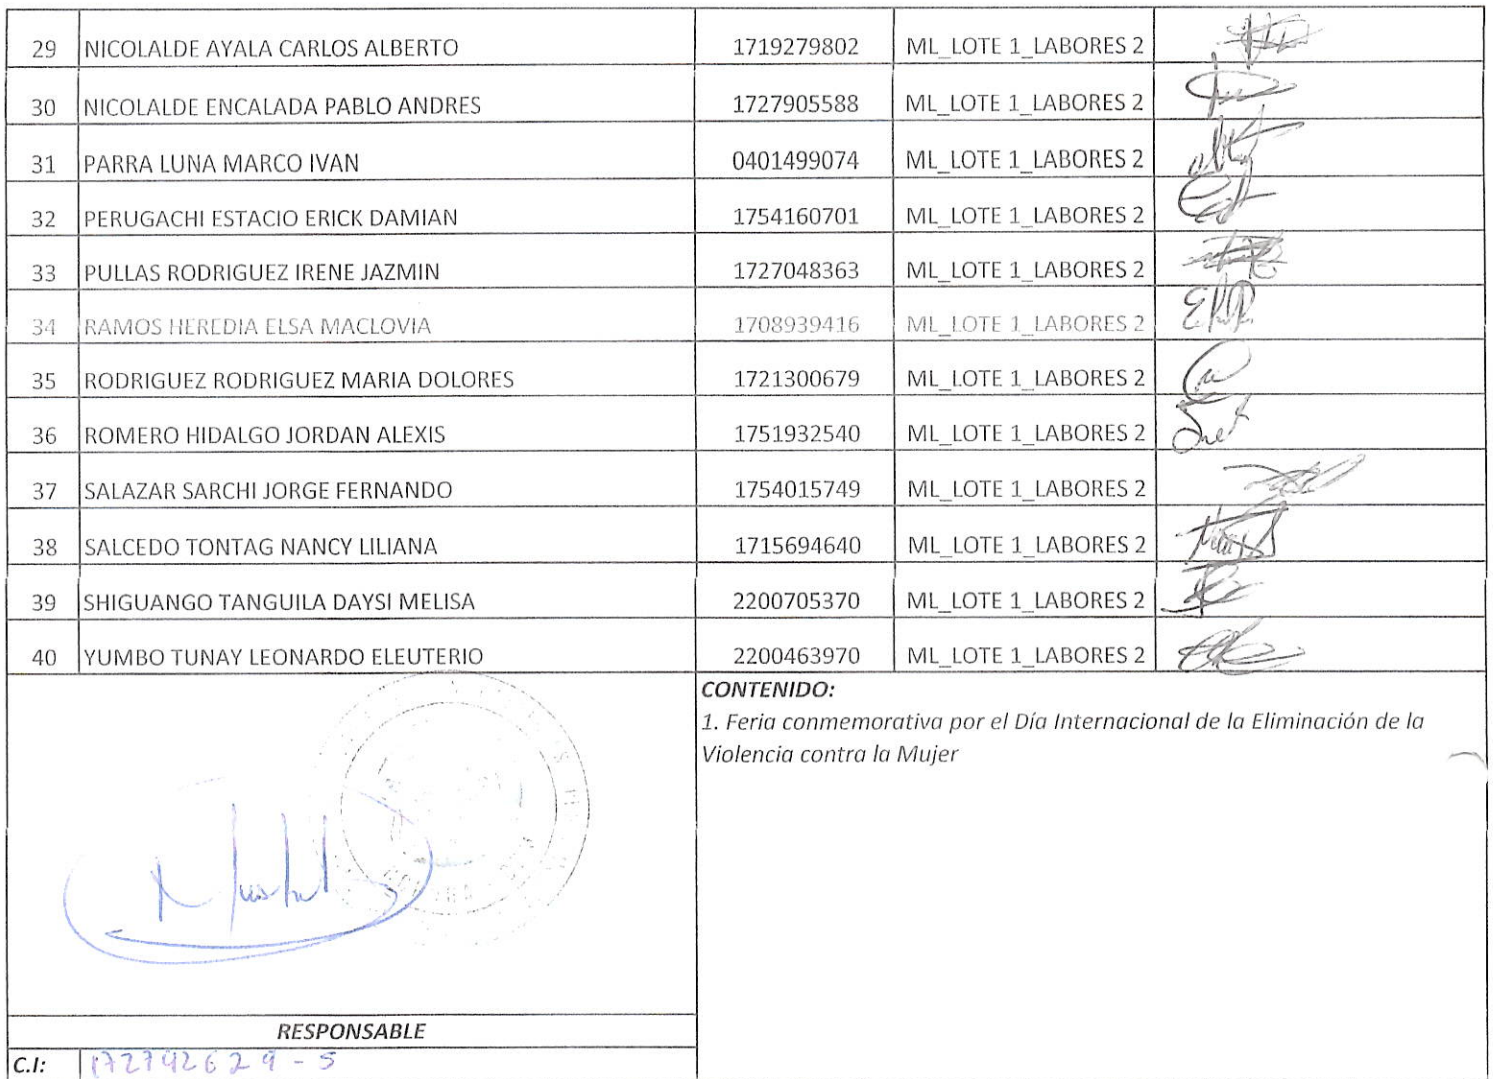 29 NICOLALDE AYALA CARLOS ALBERTO 1719279802 ML_LOTE 1_LABORES 2
30 NICOLALDE ENCALADA PABLO ANDRES 1727905588 ML_LOTE 1_LABORES 2
31 PARRA LUNA MARCO IVAN 0401499074 ML_LOTE 1_LABORES 2
32 PERUGACHI ESTACIO ERICK DAMIAN 1754160701 ML_LOTE 1_LABORES 2
33 PULLAS RODRIGUEZ IRENE JAZMIN 1727048363 ML_LOTE 1_LABORES 2
34 RAMOS HEREDIA ELSA MACLOVIA 1708939416 ML_LOTE 1_LABORES 2
35 RODRIGUEZ RODRIGUEZ MARIA DOLORES 1721300679 ML_LOTE 1_LABORES 2
36 ROMERO HIDALGO JORDAN ALEXIS 1751932540 ML_LOTE 1_LABORES 2
37 SALAZAR SARCHI JORGE FERNANDO 1754015749 ML_LOTE 1_LABORES 2
38 SALCEDO TONTAG NANCY LILIANA 1715694640 ML_LOTE 1_LABORES 2
39 SHIGUANGO TANGUILA DAYSI MELISA 2200705370 ML_LOTE 1_LABORES 2
40 YUMBO TUNAY LEONARDO ELEUTERIO 2200463970 ML_LOTE 1_LABORES 2
CONTENIDO:
1. Feria conmemorativa por el Día Internacional de la Eliminación de la
Violencia contra la Mujer
RESPONSABLE
C.I: 172792629-5